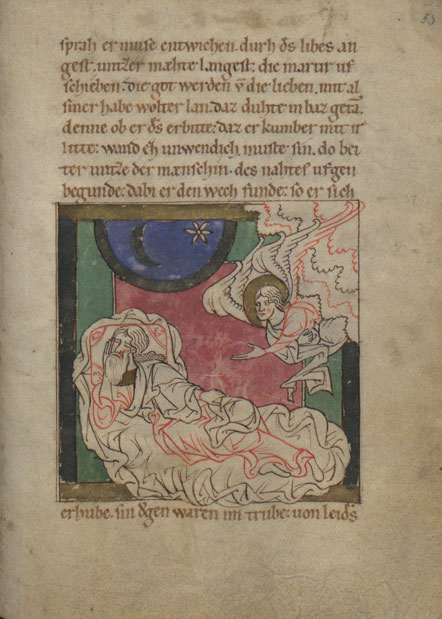 53
sprah er muͦse entwichen. durh des libes an
gest. untzer mæhte langest: die martir uf
schieben. die got werden vn̄ die lieben. mit al
siner habe wolter lan. daz duhte in baz getā.
denne ob er des erbitte: daz er kumber mit ir
litte: wand eh unwendich muͦste sin. do bei
ter untze der mænschin. des nahtes ufgen
begunde: dabi er den wech funde: so er sich
erhube. sin ögen waren im trube: von leides